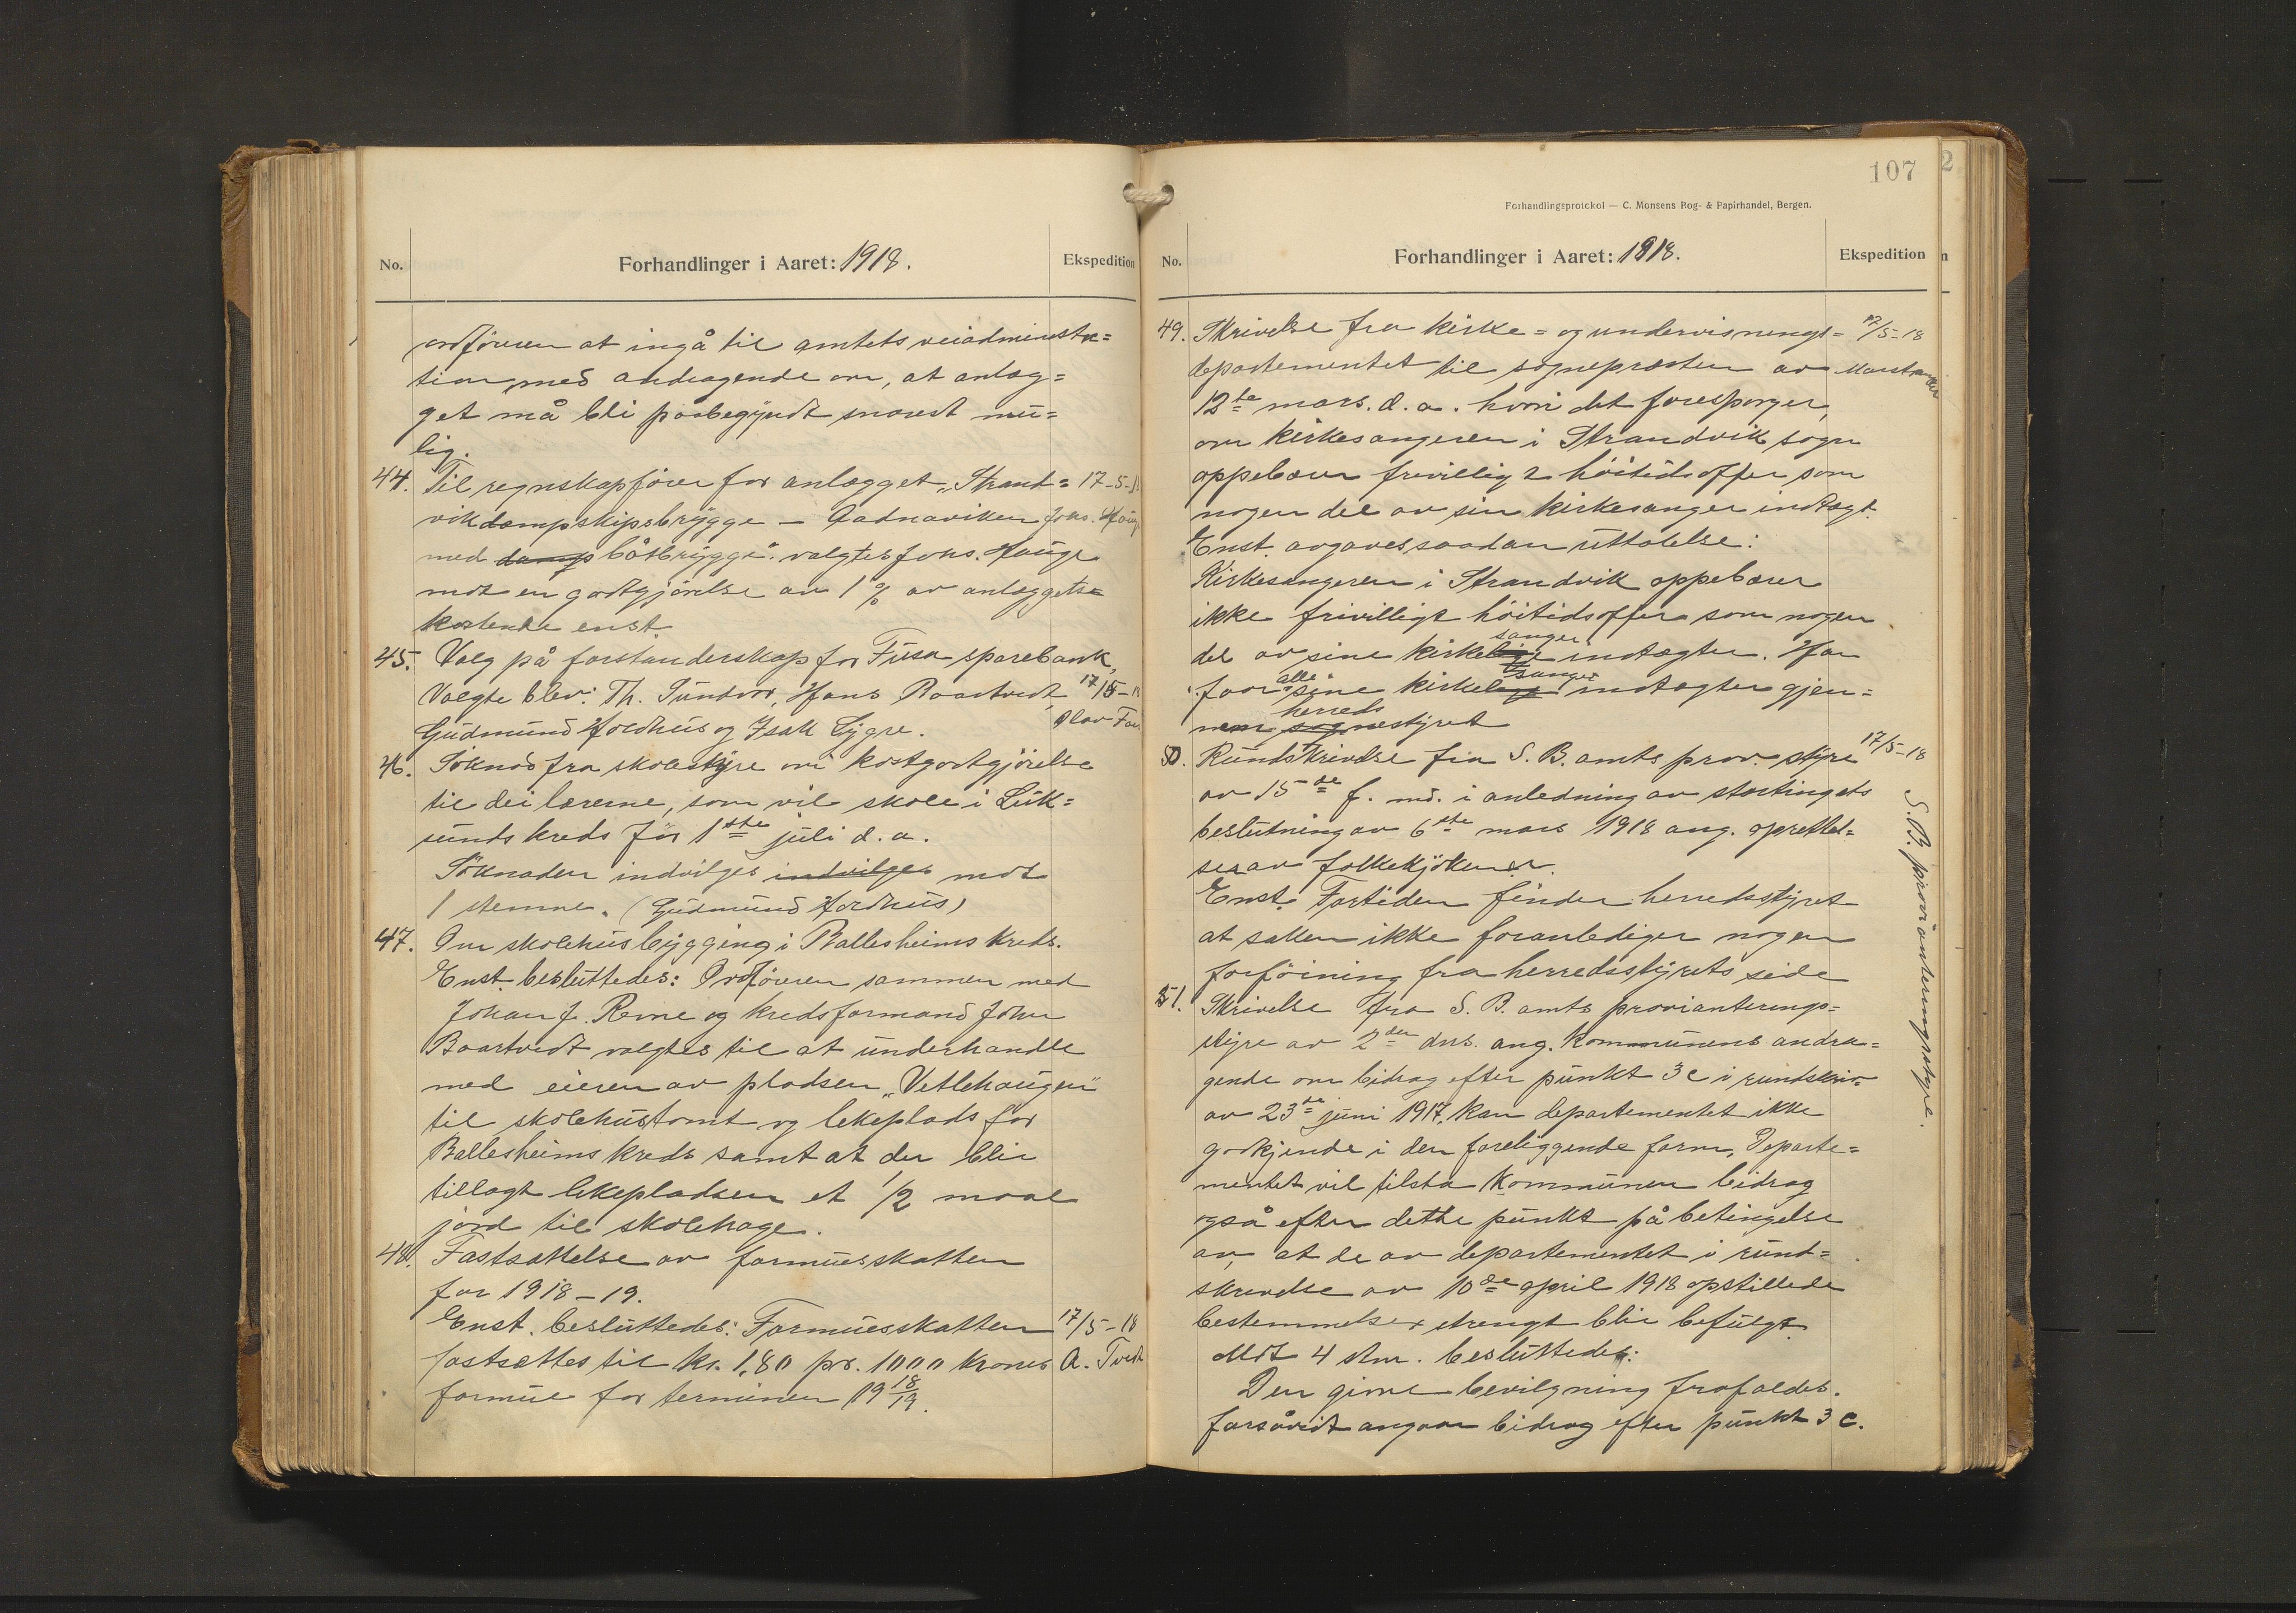 No.
Forhandlinger i Aaret: 1918.
Ekspedition
ordføreren at ingå til amtets veiadministra=
tion, med andragende om, at anlæg=
get må bli paabegyndt snarest mu=
lig.
44. Til regnskapfører for anlægget "Strand= 17-5-
vik dampskipsbrygge – Gadnaviken Johs. Haug
med damp båtbrygge". valgtes Johs. Hauge
mot en godtgjørelse av 1 % av anlæggets
kostende enst.
45. Valg på forstanderskap for Fusa sparebank,
Valgte blev: Th. Sundvor, Hans Baartvedt, 17/5-18
Gudmund Holdhus og Isak Lygre. Olav
46. Söknad fra skolestyre om kostgodtgjörelse
til dei lærerne, som vil skole i Luk=
sunds kreds för 1ste juli d.a.
Söknaden indvilges indvilges mot
1 stemme. (Gudmund Holdhus)
47. Om skolehusbygging i Ballesheims kreds.
Enst. besluttedes: Ordføreren sammen med
Johan J. Reme og kredsformand John
Baartvedt valgtes til at underhandle
med eieren av pladsen "Vetlehaugen"
til skolehustomt og lekeplads for
Ballesheims kreds samt at der blir
tillagt lekepladsen et 1/2 maal
jord til skolehage.
48. Fastsættelse av formuesskatten
for 1918-19.
Enst. besluttedes: Formuesskatten 17/5-18
fastsættes til kr. 1,80 pr. 1000 kroner A. Tvedt
formue for terminen 19 18/19.
107
Forhandlingsprotokol — C. Monsens Bog- & Papirhandel, Bergen.
No.
Forhandlinger i Aaret: 1918.
Ekspedition
49. Skrivelse fra kirke= og undervisnings= 17/5-18
departementet til sognepresten av
12te mars. d.a. hvori det foresporger,
om kirkesangeren i Strandvik sogn
oppebærer frivilligt höitidsoffer som
nogen del av sin kirkesanger indtægt.
Enst. avgaves saadan uttalelse:
Kirkesangeren i Strandvik oppebærer
ikke frivilligt höitidsoffer som nogen
sanger
del av sine kirkelige indtægter. Han
alle sanger
faar sine kirkelige indtægter gjen=
herreds
nem sognestyret
50. Rundskrivelse fra S. B. amts prov. styre 17/5-18
av 15de f. md. i anledning av stortingets
beslutning av 6te mars 1918 ang. oprettel=
se av folkekjökener.
Enst. Fortiden finder herredsstyret
at saken ikke foranlediger nogen
forföining fra herredsstyrets side
51. Skrivelse fra S. B. amts provianterings=
styre av 2den dns. ang. kommunens andra=
gende om bidrag efter punkt 3 c i rundskriv.
av 23de juni 1917. kan departementet ikke
godkjende i den foreliggende form, Departe=
mentet vil tilstå kommunen bidrag
også efter dette punkt på betingelse
av, at de av departementet i rund=
skrivelse av 10de april 1918 opstillede
bestemmelser strengt blir befulgt.
Mot 4 stm. besluttedes:
Den givne bevilgning frafaldes.
forsåvidt angaar bidrag efter punkt 3 c.
S. B. provianteringsstyre.